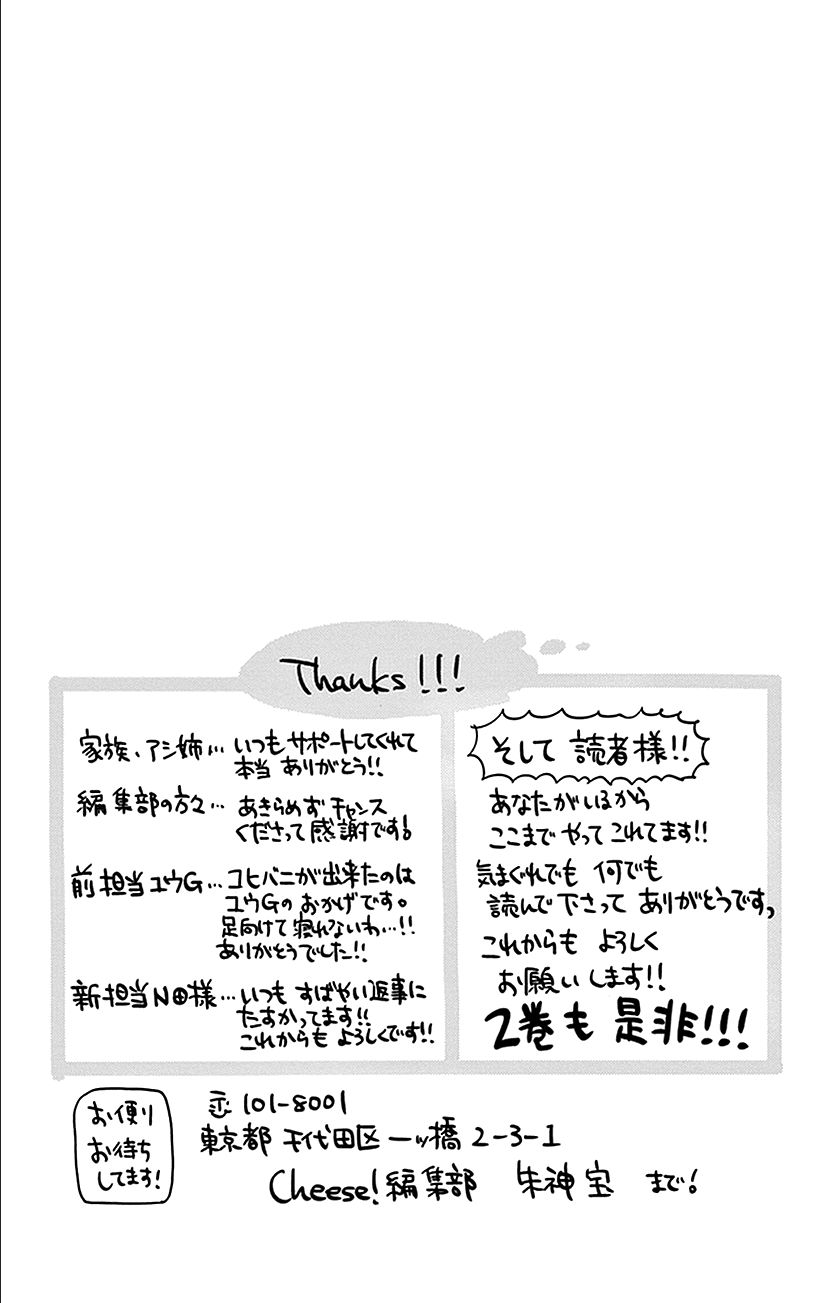 Thanks!!!
家族、アシ姉… いつもサポートしてくれて
本当 ありがとう!!
編集部の方々… あきらめず チャンス
くださって 感謝です!
前担当ユウG… コヒバニが出来たのは
ユウGの おかげです。
足向けて 寝れないわ…!!
ありがとうでした!!
新担当N田様… いつも すばやい返事に
たすかってます!!
これからも よろしくです!!
そして 読者様!!
あなたがいるから
ここまで やってこれてます!!
気まぐれでも 何でも
読んで下さって ありがとうです。
これからも よろしく
お願いします!!
2巻も 是非!!!
お便り
お待ち
してます!
〒101-8001
東京都 千代田区 一ツ橋 2-3-1
Cheese!編集部 朱神宝 まで!